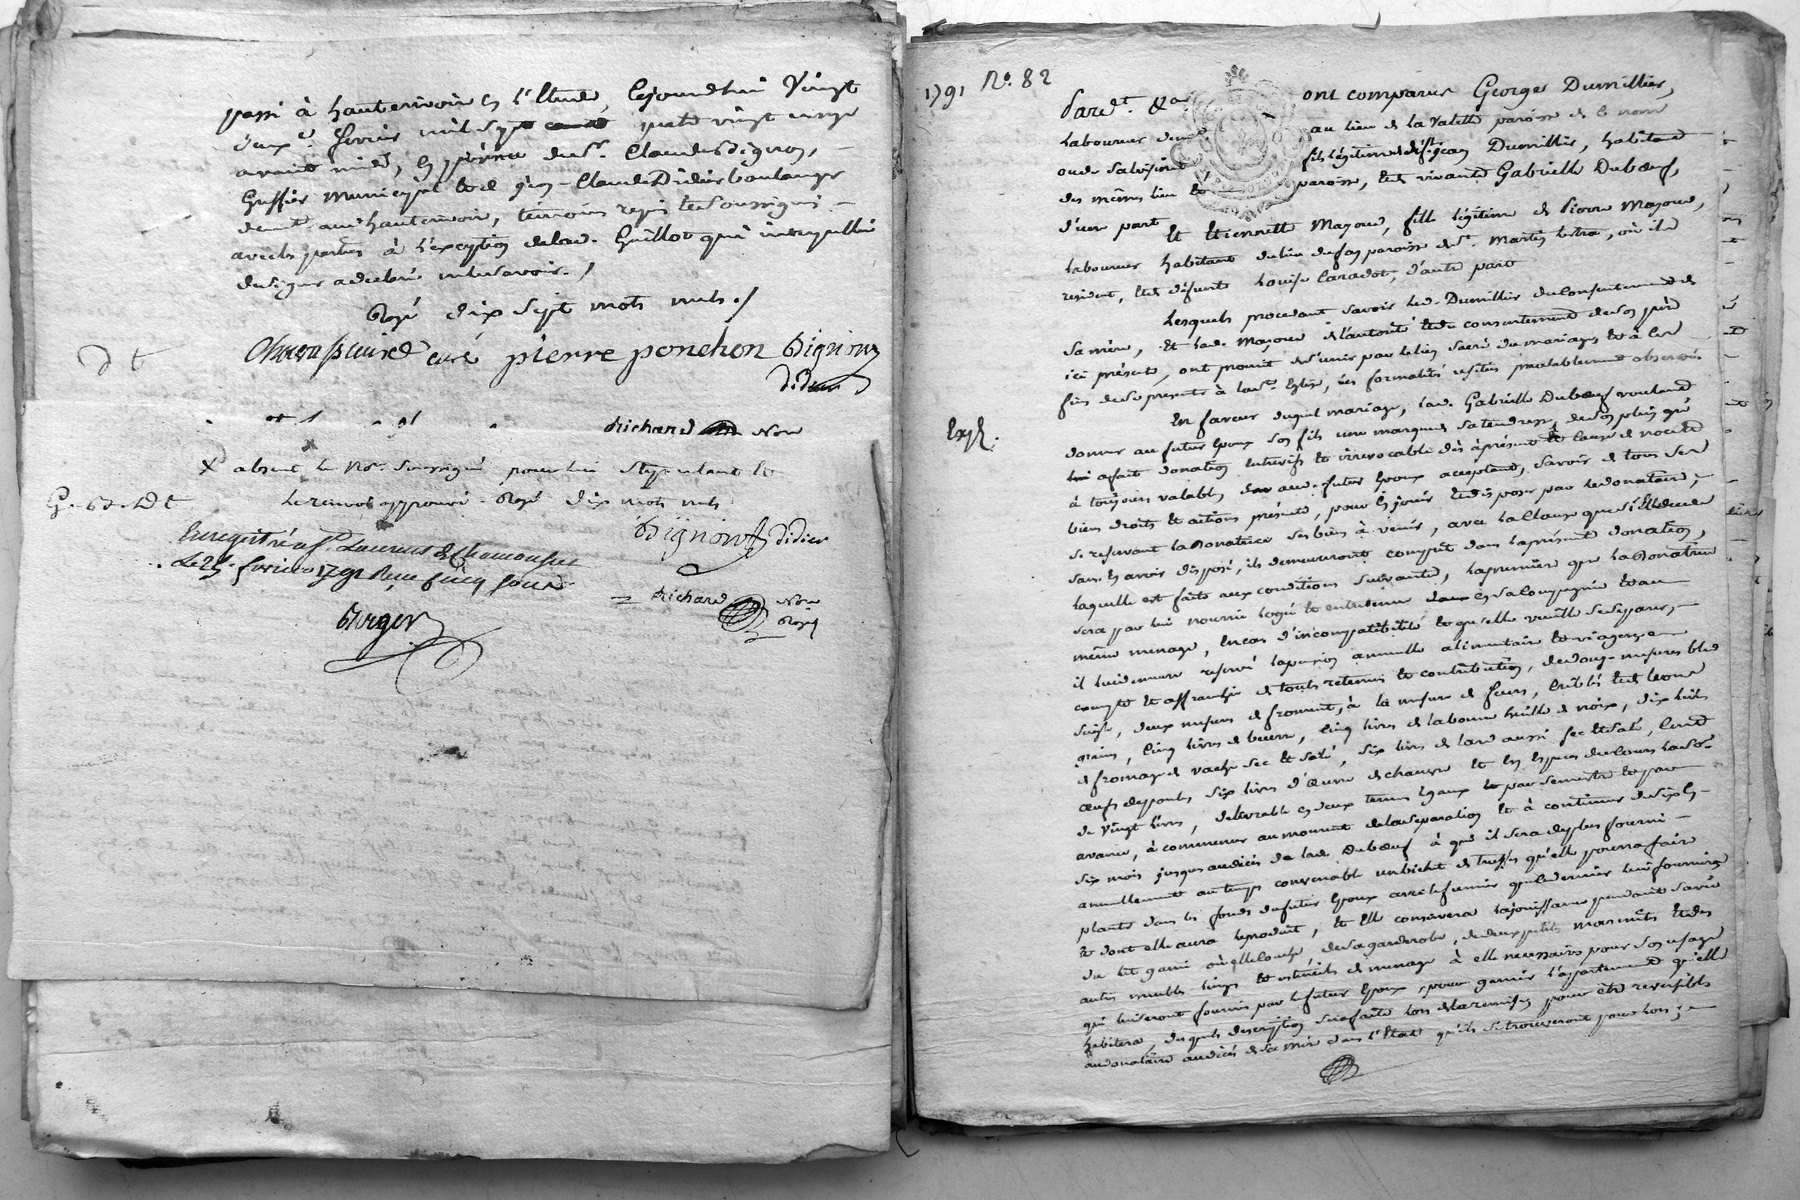 passé à hauterivoire en l'Etude, Cejourdhui Vingt
deux.e fevrier mil sept cent quatre vingt onze
avant midi, en présence de Sr. Claude Bignon,
Greffier municipal et de Sr Jean-Claude Didier boulanger
demt. aud. hauterivoire, témoins requis et soussignés
avec les parties à l'exception de lad. Guillot qui interpellée
de signer a déclaré ne le savoir ./
Rayé dix sept mots nuls ./
curé pierre ponchon Bignon
didier
dt
Richard Nore
X absent, le Nre. soussigné pour lui stipulant et
le renvoi approuvé. Rayé dix mots nuls
G. dt
Bignon didier
Enregistré a St. Laurent de Chamousset
Le 25. fevrier 1791 Reçu cinq sous
Richard Nore
Royal
Berger
1791 No. 82
Pardt. &a ont comparus George Dumillier,
laboureur demt. au lieu de la Valette paroisse de
fils légitime de deft. Jean Dumillier, habitant
des mêmes lieu et paroisse, et de vivante Gabrielle Duboeuf,
d'une part
Et Etiennette Mayoud, fille légitime de Pierre Mayoud,
laboureur habitant du lieu de paroisse de St. Martin , où il
resident, et de défunte Louise Caradot, d'autre part
Lesquels procedant savoir led. Dumillier du consentement de
sa mère, et lad. Mayoud de l'autorité et du consentement de son père
ici présents, ont promit de s'unir par le lien sacré du mariage et à ces
fins de se presenter à la Ste. Eglise, les formalités usitées prealablement observées
Exp.
En faveur duquel mariage, lad. Gabrielle Duboeuf voulant
donner au futur Epoux son fils une marque de sa tendresse, de son plein gré
lui a fait donation entrevifs et irrevocable dès àprésent et
à toujours valable, aud. futur Epoux acceptant, savoir de tous ses
biens droits et actions présents, pour en jouir et disposer par le donataire;
se reservant la Donatrice ses biens à venir, avec la Clause que si Elle decede
sans en avoir disposé, ils demeureront compris dans la présente donation,
laquelle est faite aux conditions suivantes, la premiere que la Donatrice
sera par lui nourrie logée et entretenue dans en sa Compagnie et au
même menage, en cas d'incompatibilité et qu'elle veuille se separer,
il lui demeure reservé la pension annuelle alimentaire et viagere
exempte et affranchie de toute retenue et contribution, de douze mesures bled
seigle, deux mesures de froment, à la mesure de feurs, criblés et de bonne
grains, Cinq livres de beurre, Cinq livres de la bonne huille de noix, dix livres
de fromage de vache sec et salé, six livres de lard aussi sec et salé, Cent
oeufs de poules, six livres d'Oeuvre de chanvre et en Especes du Cours la so.
de Vingt livres, delivrable en deux termes Egaux et par semestre et par
avance, à commencer au moment de la separation et à continuer de six en
six mois jusques au décès de lad. Duboeuf à qui il sera de plus fourni
annuellement au temps convenable un bichet de truffes qu'elle pourra faire
planter dans les fonds du futur Epoux avec le fumier que ce dernier lui fournira
et dont elle aura le produit, et elle conservera la jouissance pendant sa vie
du lit garni où elle couche de sa garderobe, de deux petits marmites et des
autres meubles linges et ustenciles de menage à elle necessaires pour son usage
qui lui seront fournis par le futur Epoux, pour garnir l'appartement qu'elle
habitera, desquels description sera faite lors de la remise pour être reversibles
au donataire au décès de sa mère dans l'Etat qu'ils se trouveront pour lors;